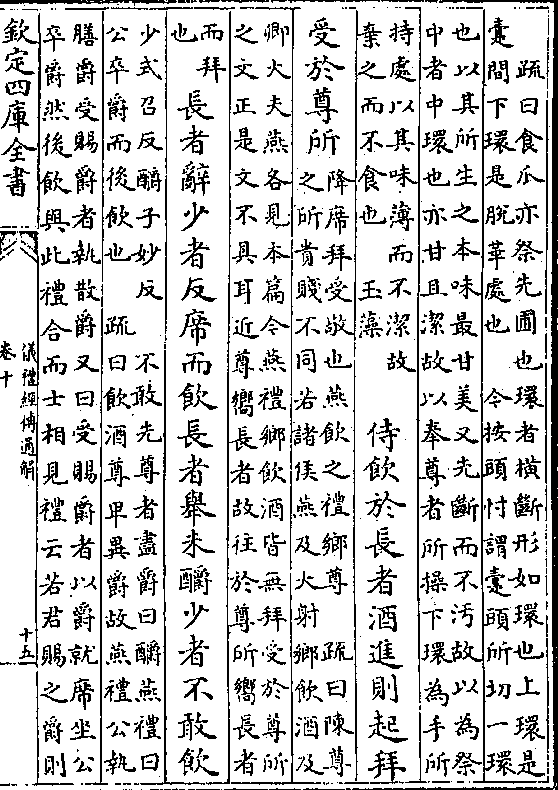 疏曰食瓜亦祭先圃也環者橫斷形如環也上環是
疐間下環是脫華處也　今按頭忖謂疐頭所切一環
也以其所生之本味最甘美又先斷而不汚故以為祭
中者中環也亦甘且潔故以奉尊者所操下環為手所
持處以其味薄而不潔故
棄之而不食也　玉藻
侍飲於長者酒進則起拜
受於尊所
降席拜受敬也燕飲之禮鄉尊　疏曰陳尊
之所貴賤不同若諸侯燕及大射鄉飲酒及
卿大夫燕各見本篇今燕禮鄉飲酒皆無拜受於尊所
之文正是文不具耳近尊嚮長者故往於尊所嚮長者
而拜
也
長者辭少者反席而飲長者舉未釂少者不敢飲
少式召反釂子妙反　不敢先尊者盡爵曰釂燕禮曰
公卒爵而後飲也　疏曰飲酒尊卑異爵故燕禮公執
膳爵受賜爵者執散爵又曰受賜爵者以爵就席坐公
卒爵然後飲與此禮合而士相見禮云若君賜之爵則
欽定四庫全書
儀禮經傳通解
卷十
十五